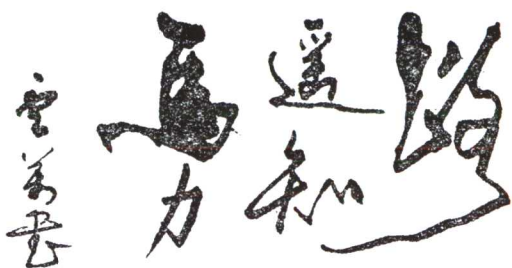 路
遥知
馬力
書